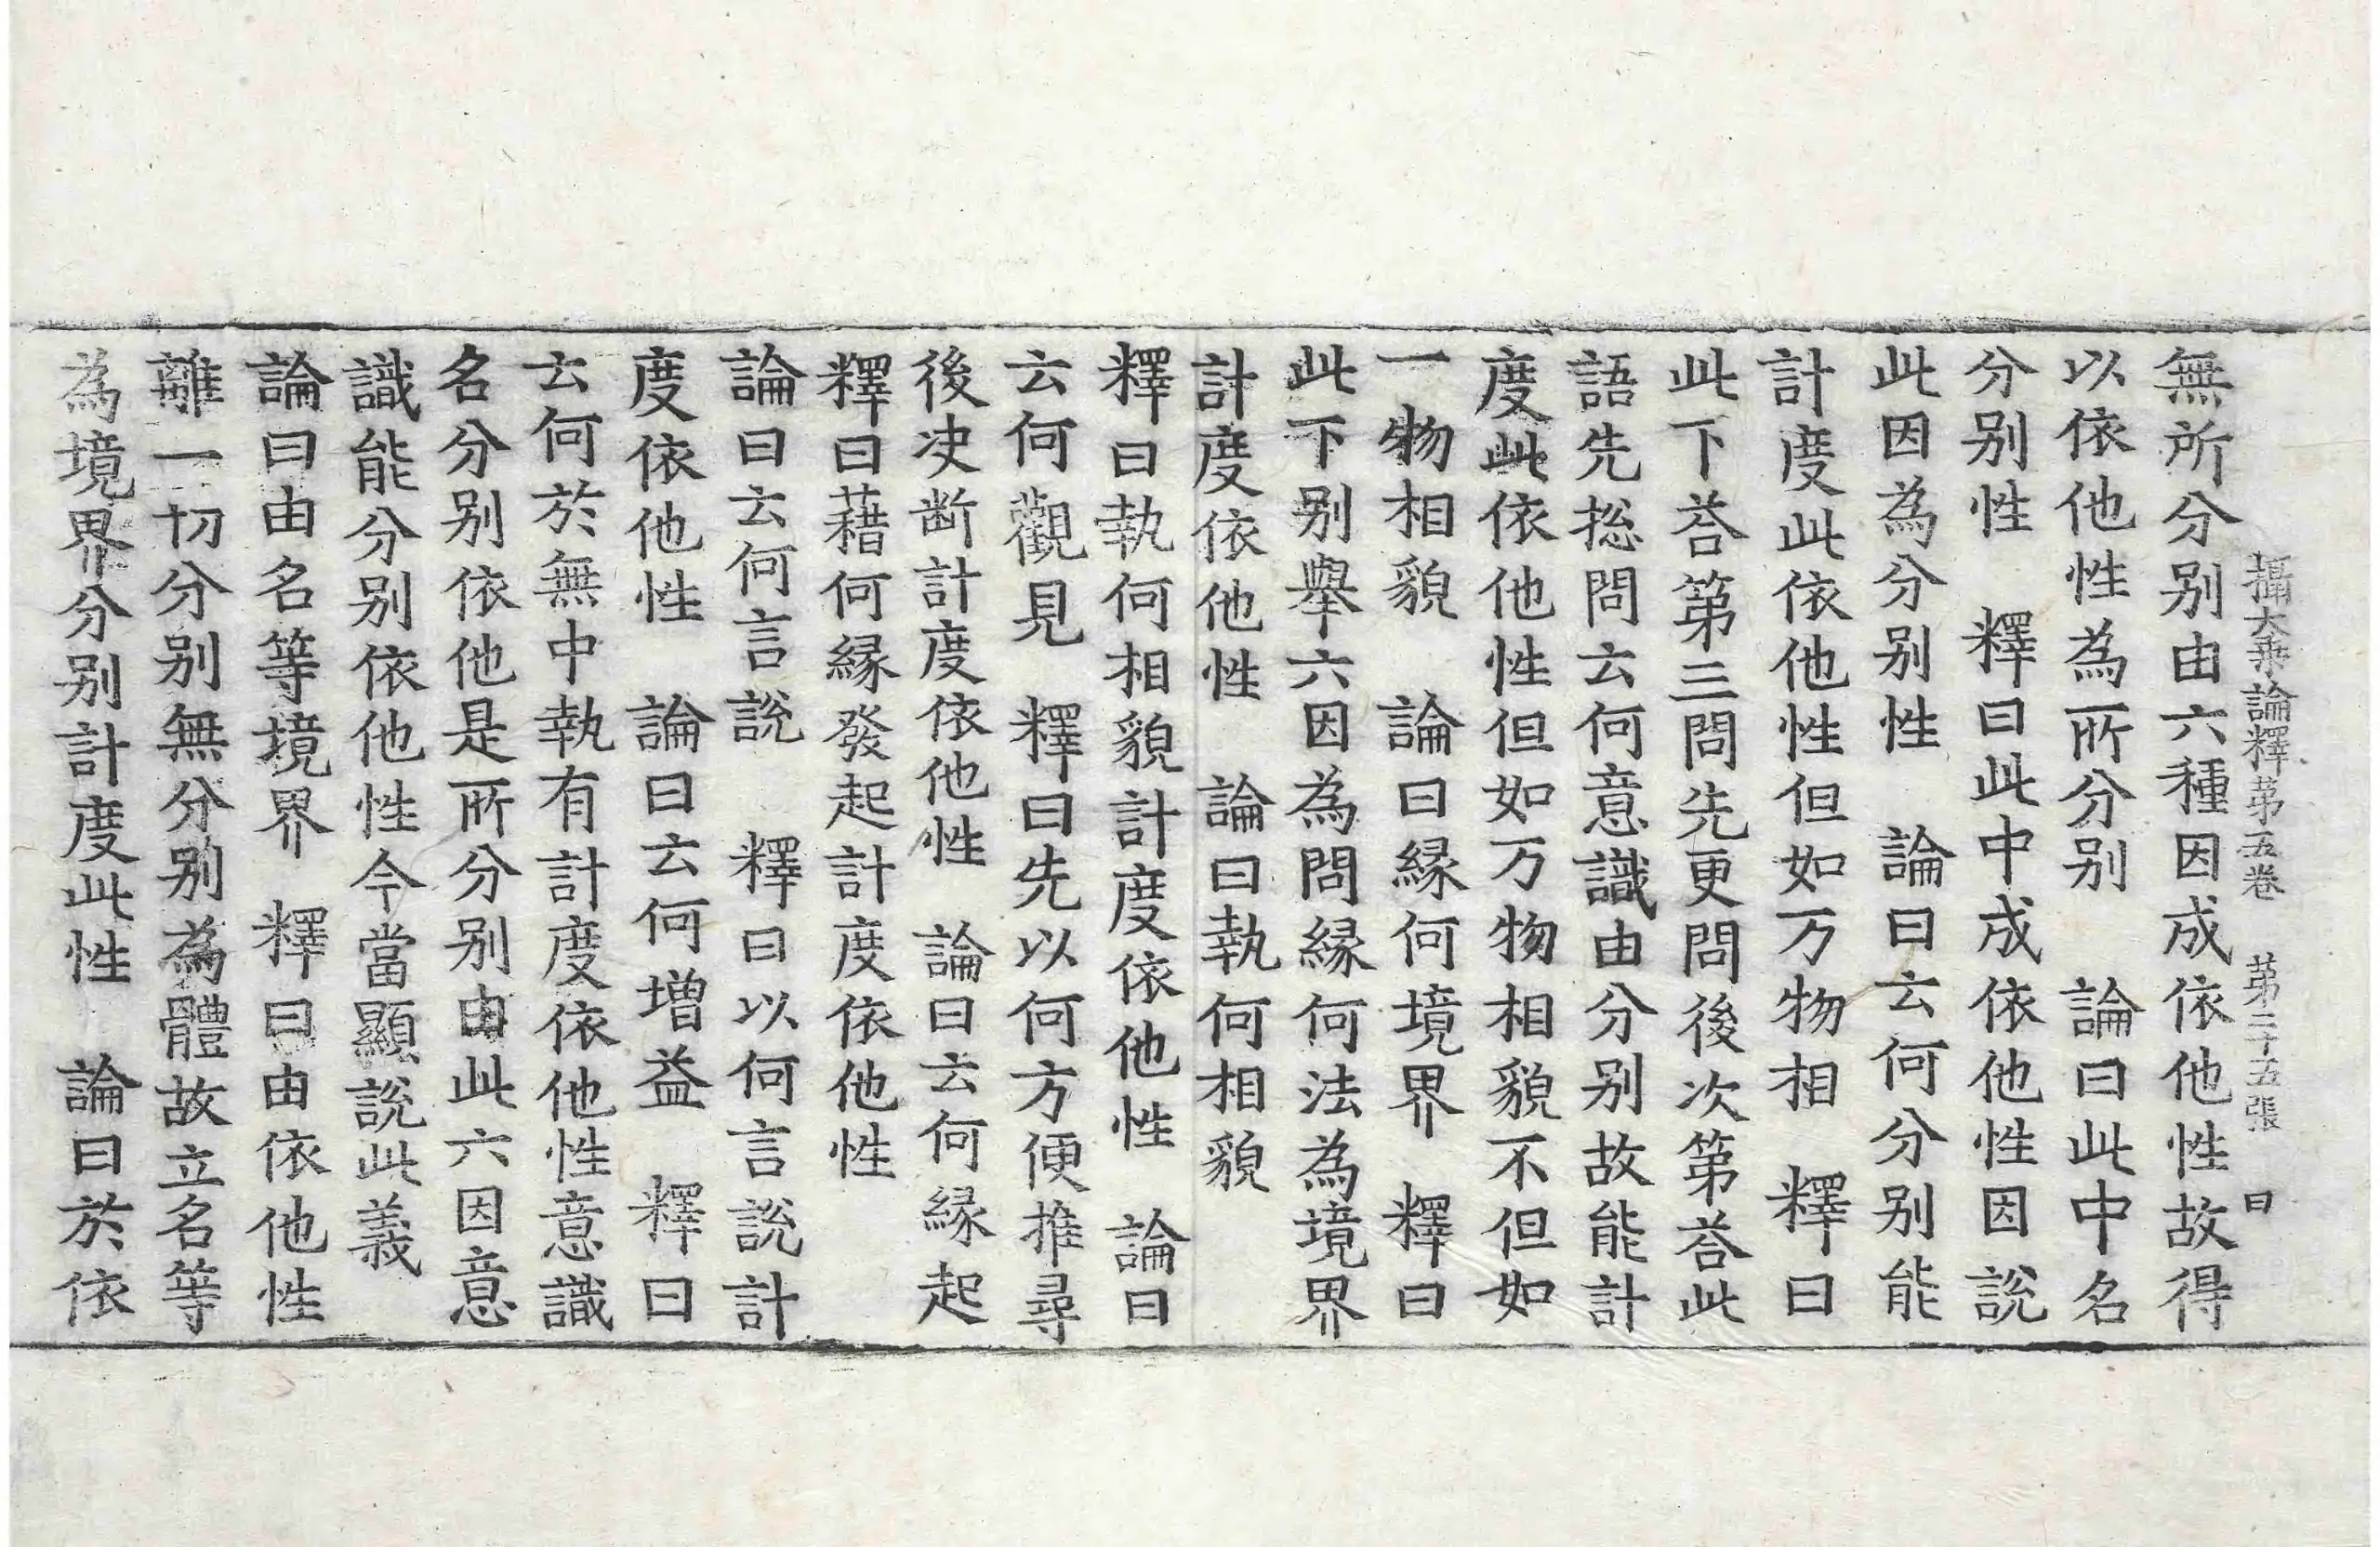 攝大乗論釋第五卷　第二十五張　曰
無所分别由六種因成依他性故得
以依他性為所分别　論曰此中名
分别性　釋曰此中成依他性因說
此因為分别性　論曰云何分别能
計度此依他性但如万物相　釋曰
此下荅第三問先更問後次第荅此
語先捴問云何意識由分别故能計
度此依他性但如万物相貌不但如
一物相貌　論曰縁何境界　釋曰
此下别舉六因為問縁何法為境界
計度依他性　論曰執何相貌
釋曰執何相貌計度依他性　論曰
云何觀見　釋曰先以何方便推尋
後决断計度依他性　論曰云何縁起
釋曰藉何縁發起計度依他性
論曰云何言說　釋曰以何言說計
度依他性　論曰云何増益　釋曰
云何於無中執有計度依他性意識
名分别依他是所分别由此六因意
識能分别依他性今當顯說此義
論曰由名等境界　釋曰由依他性
離一切分别無分别為體故立名等
為境界分别計度此性　論曰於依